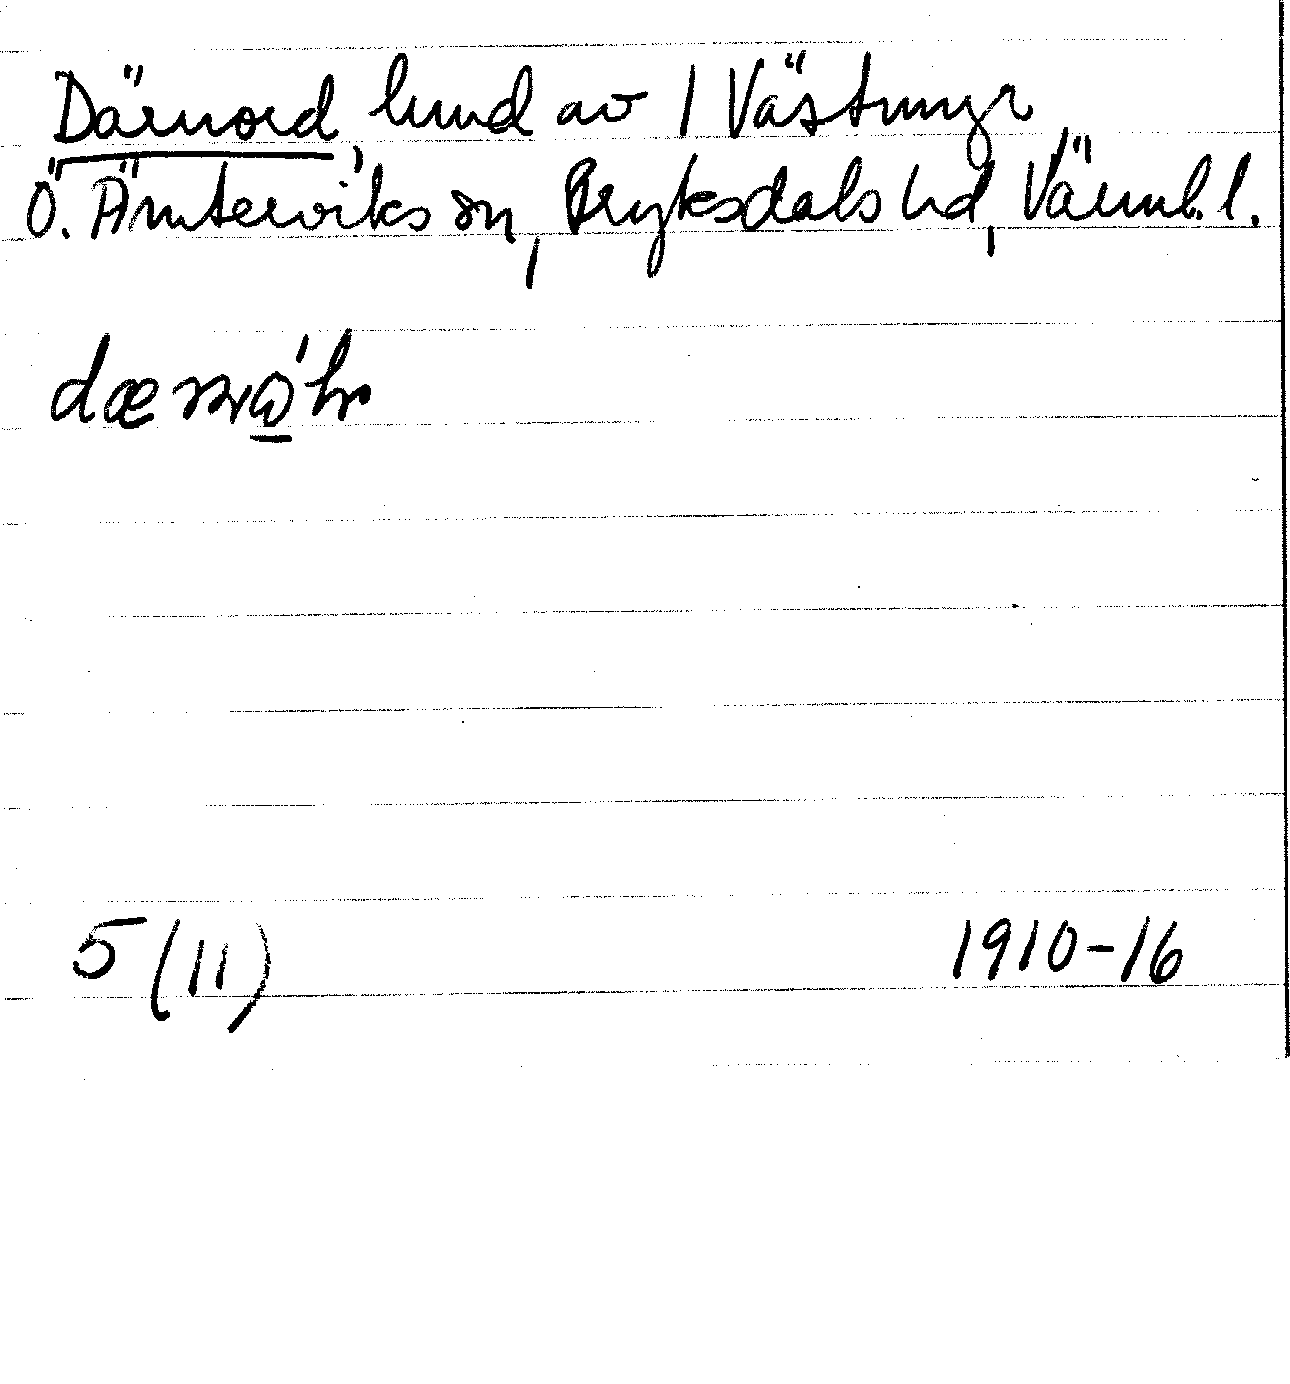 Därnord, lund av 1 Västmyr
Ö. Ämterviks sn, Fryksdals hd, Värml. l.
5 (11)
1910-16